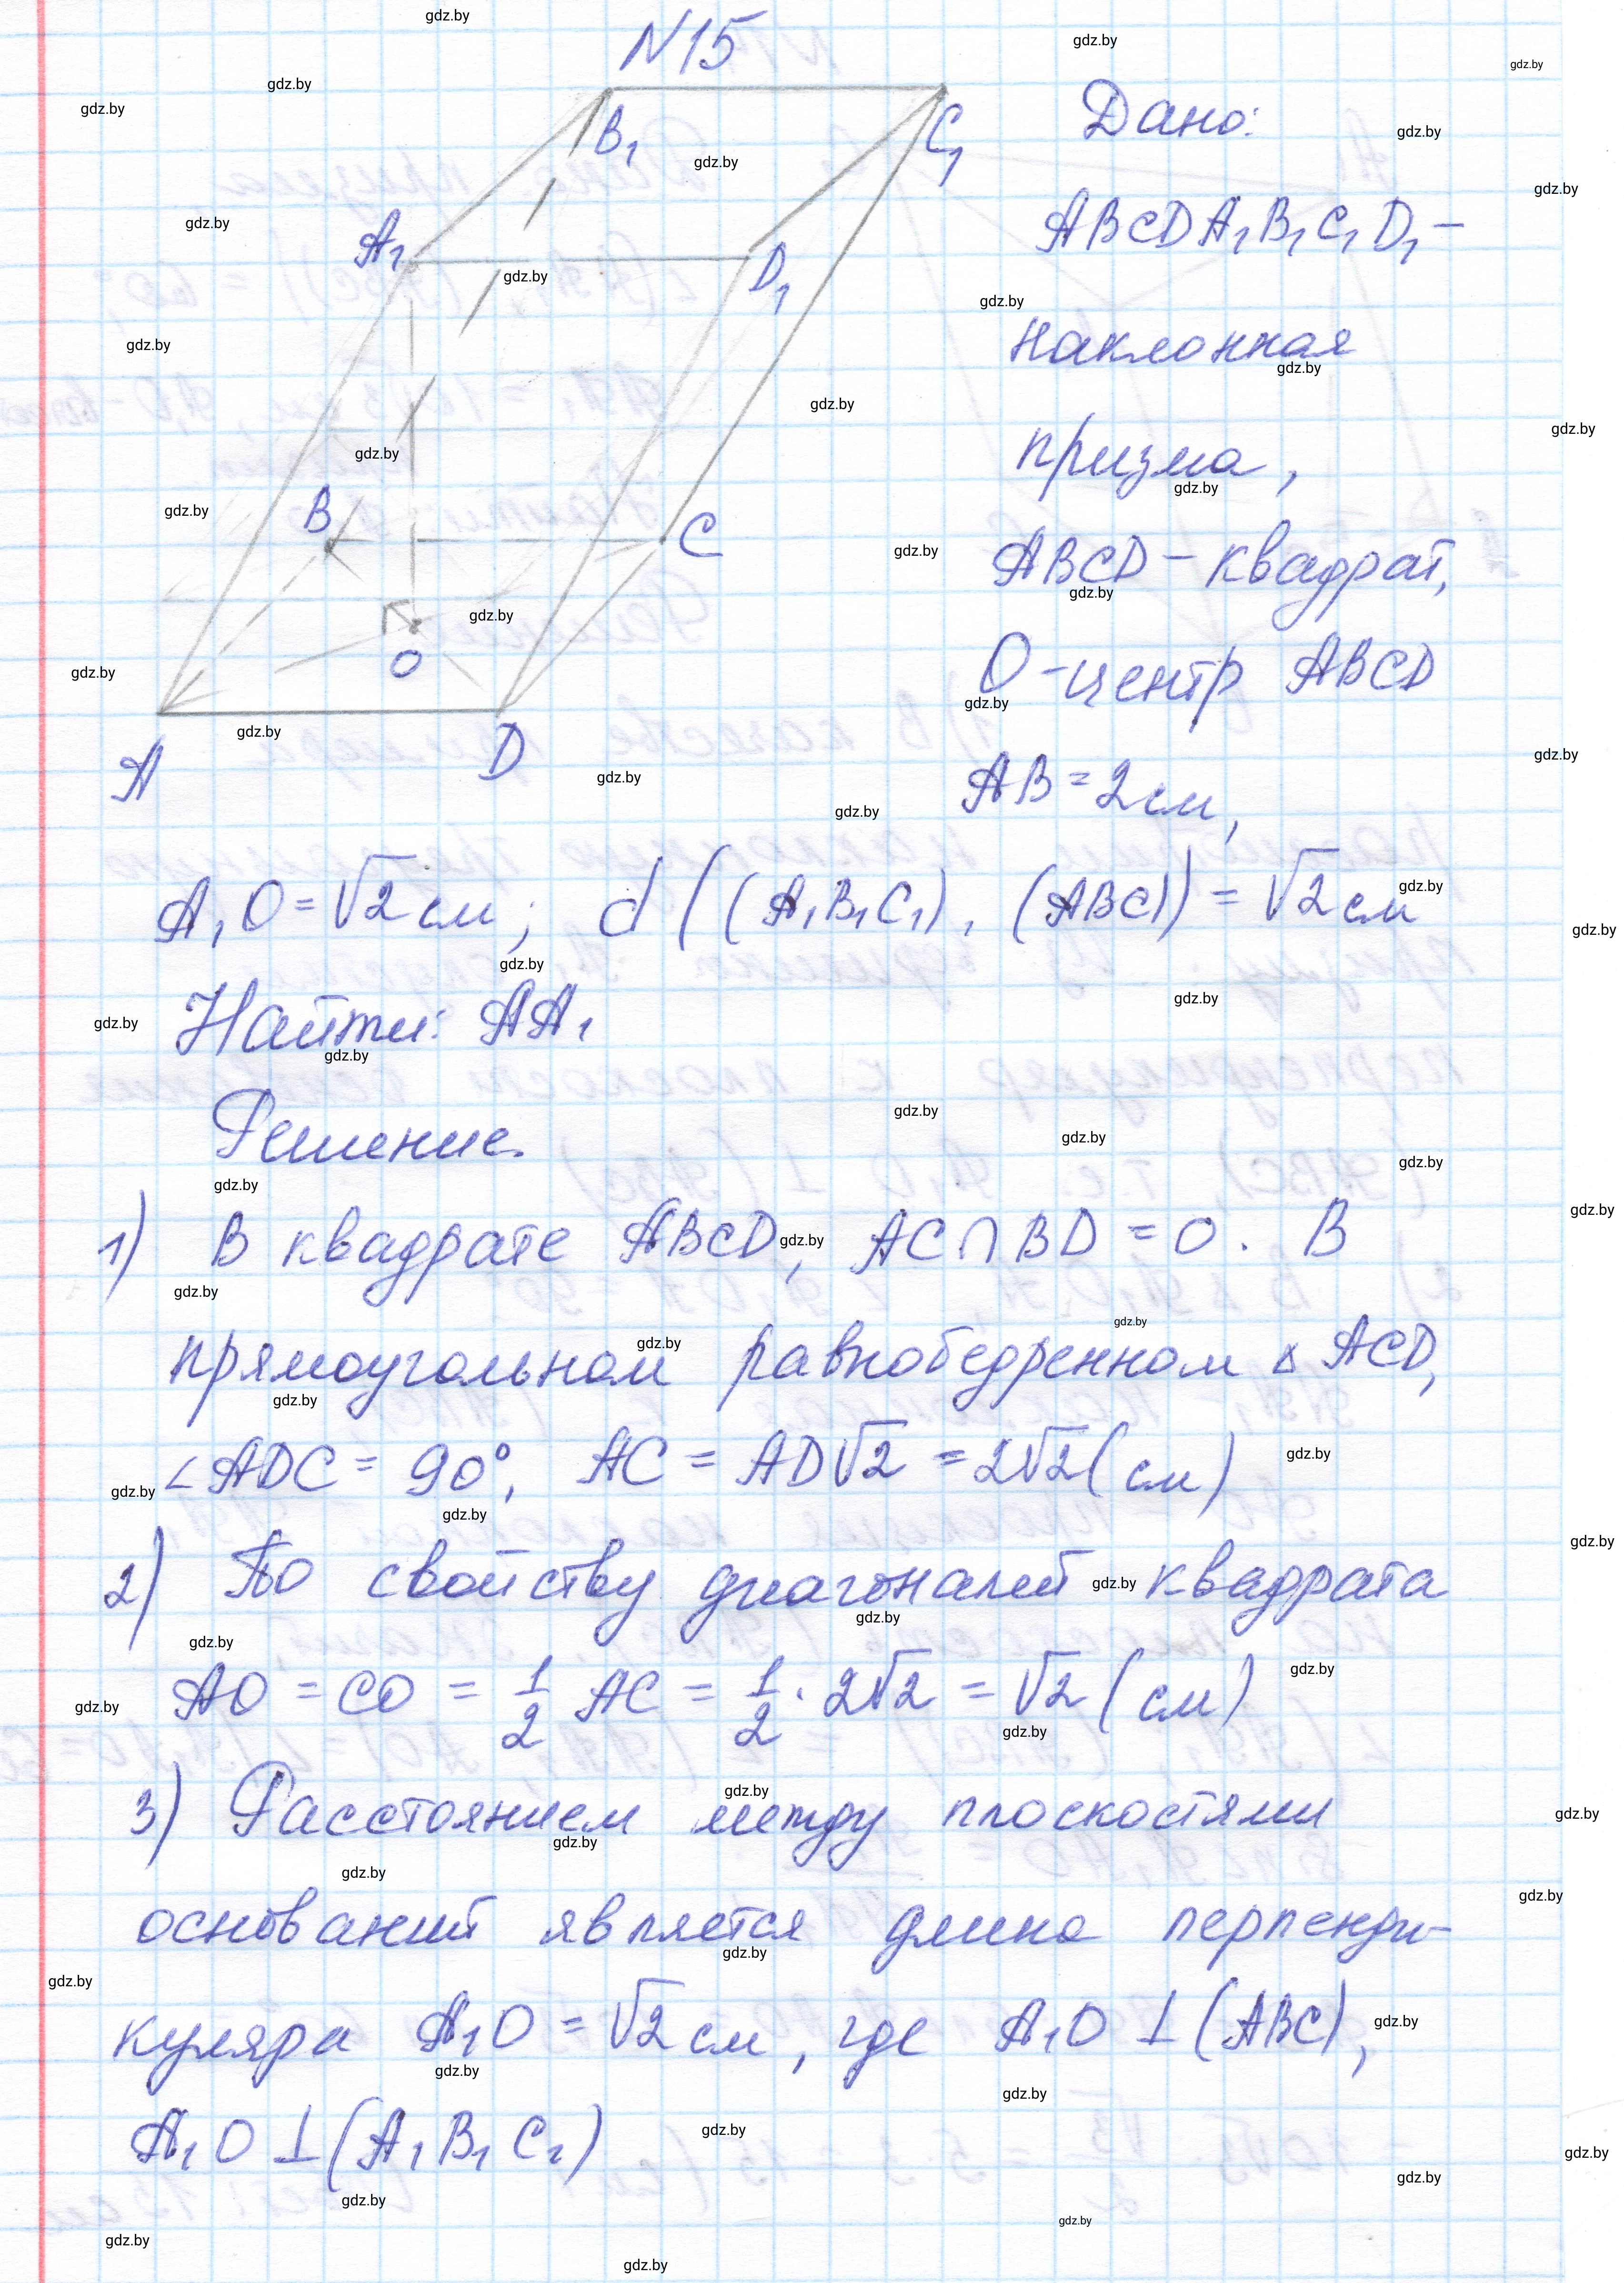 N15
B₁
C₁
A₁
D₁
B
C
O
A
D
Дано:
ABCDA₁B₁C₁D₁ –
наклонная
призма,
ABCD – квадрат,
O – центр ABCD
AB = 2 см,
A₁O = √2 см; d((A₁B₁C₁), (ABC)) = √2 см
Найти: AA₁
Решение.
1) В квадрате ABCD, AC∩BD = O. В
прямоугольном равнобедренном △ACD,
∠ADC = 90°, AC = AD√2 = 2√2 (см)
2) По свойству диагоналей квадрата
AO = CO = 1/2 AC = 1/2 · 2√2 = √2 (см)
3) Расстоянием между плоскостями
оснований является длина перпенди-
куляра A₁O = √2 см, где A₁O ⊥ (ABC),
A₁O ⊥ (A₁B₁C₁)
gdz.by